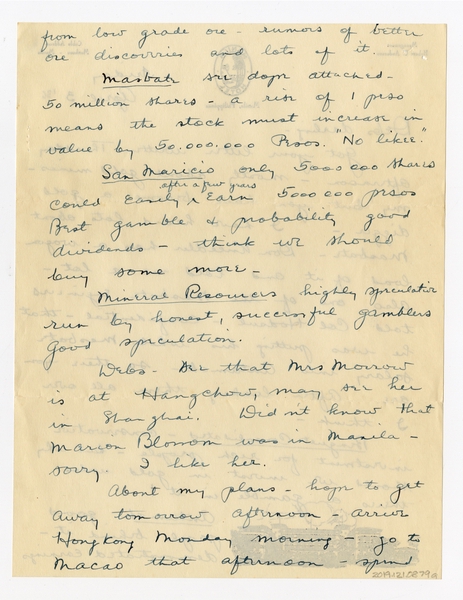 from low grade ore - rumors of better
ore discovries and lots of it.
Masbate see dope attached -
50 million shares - a rise of 1 peso
means the stock must increase in
value by 50.000.000 Pesos. "No likee."
San Maricio only 5000000 shares
after a few years
could Easily Earn 5000000 pesos
Best gamble & probability good
dividends - think we should
buy some more -
Mineral Resources highly speculative
run by honest, successful gamblers
good speculation.
Debs - See that Mrs Morrow
is at Hangchow, may see her
in Shanghai. Didn't know that
Marion Blossom was in Manila -
sorry. I like her.
About my plans - hope to get
away tomorrow afternoon - arrive
Hongkong Monday morning - go to
Macao that afternoon - spend
2019.121.0879a